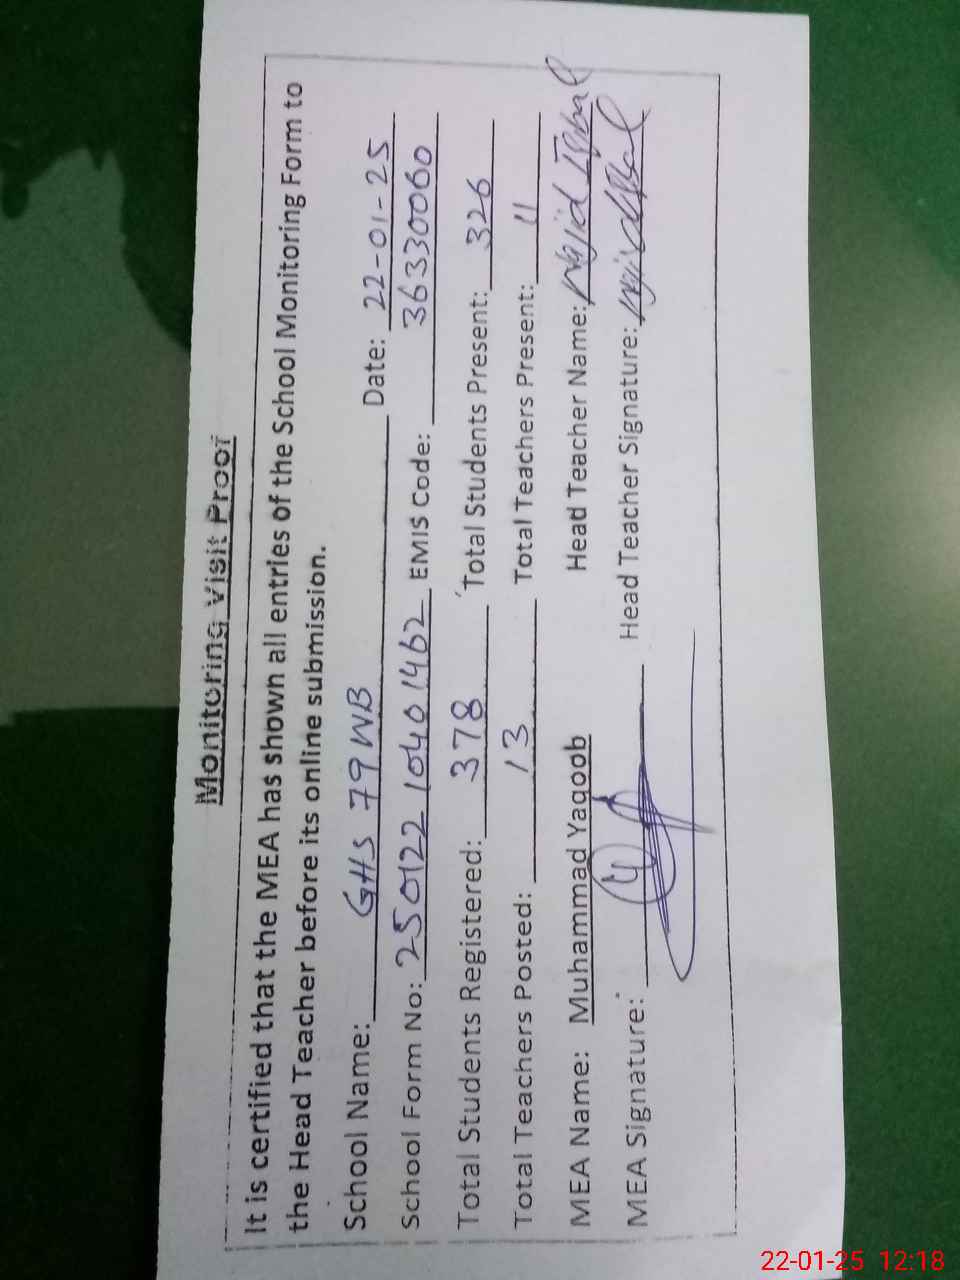 Monitoring Visit Proof
It is certified that the MEA has shown all entries of the School Monitoring Form to
the Head Teacher before its online submission.
School Name: GHS 79 WB Date: 22-01-25
School Form No: 250122 10401462 EMIS Code: 36330060
Total Students Registered: 378 Total Students Present: 326
Total Teachers Posted: 13 Total Teachers Present: 11
MEA Name: Muhammad Yaqoob Head Teacher Name: Majid Iqbal
MEA Signature: Head Teacher Signature:
22-01-25 12:18